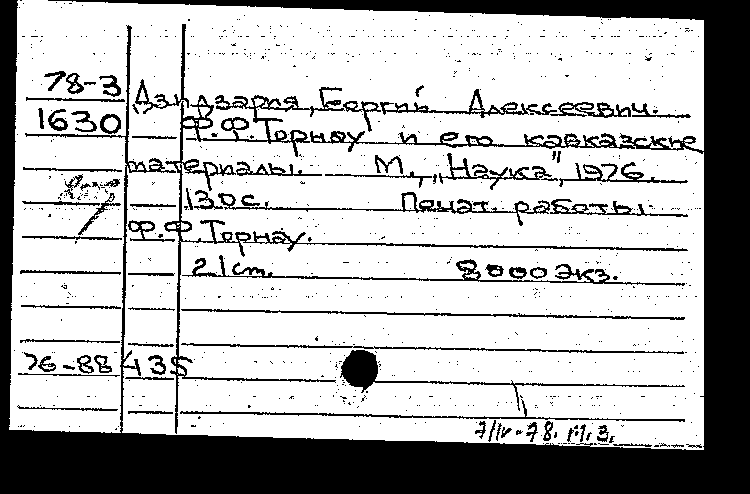 78-3 Дзидзария, Георгий Алексеевич.
1630 Ф.Ф. Торнау и его кавказские
материалы. М., „Наука", 1976.
130 с. Печат. работы
Ф.Ф. Торнау.
21 cm. 8000 экз.
76-88435
7/IV-78. М.З.